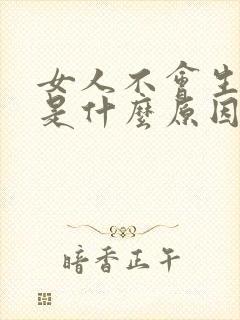 女人不會生
是什麼原因
暗香正午